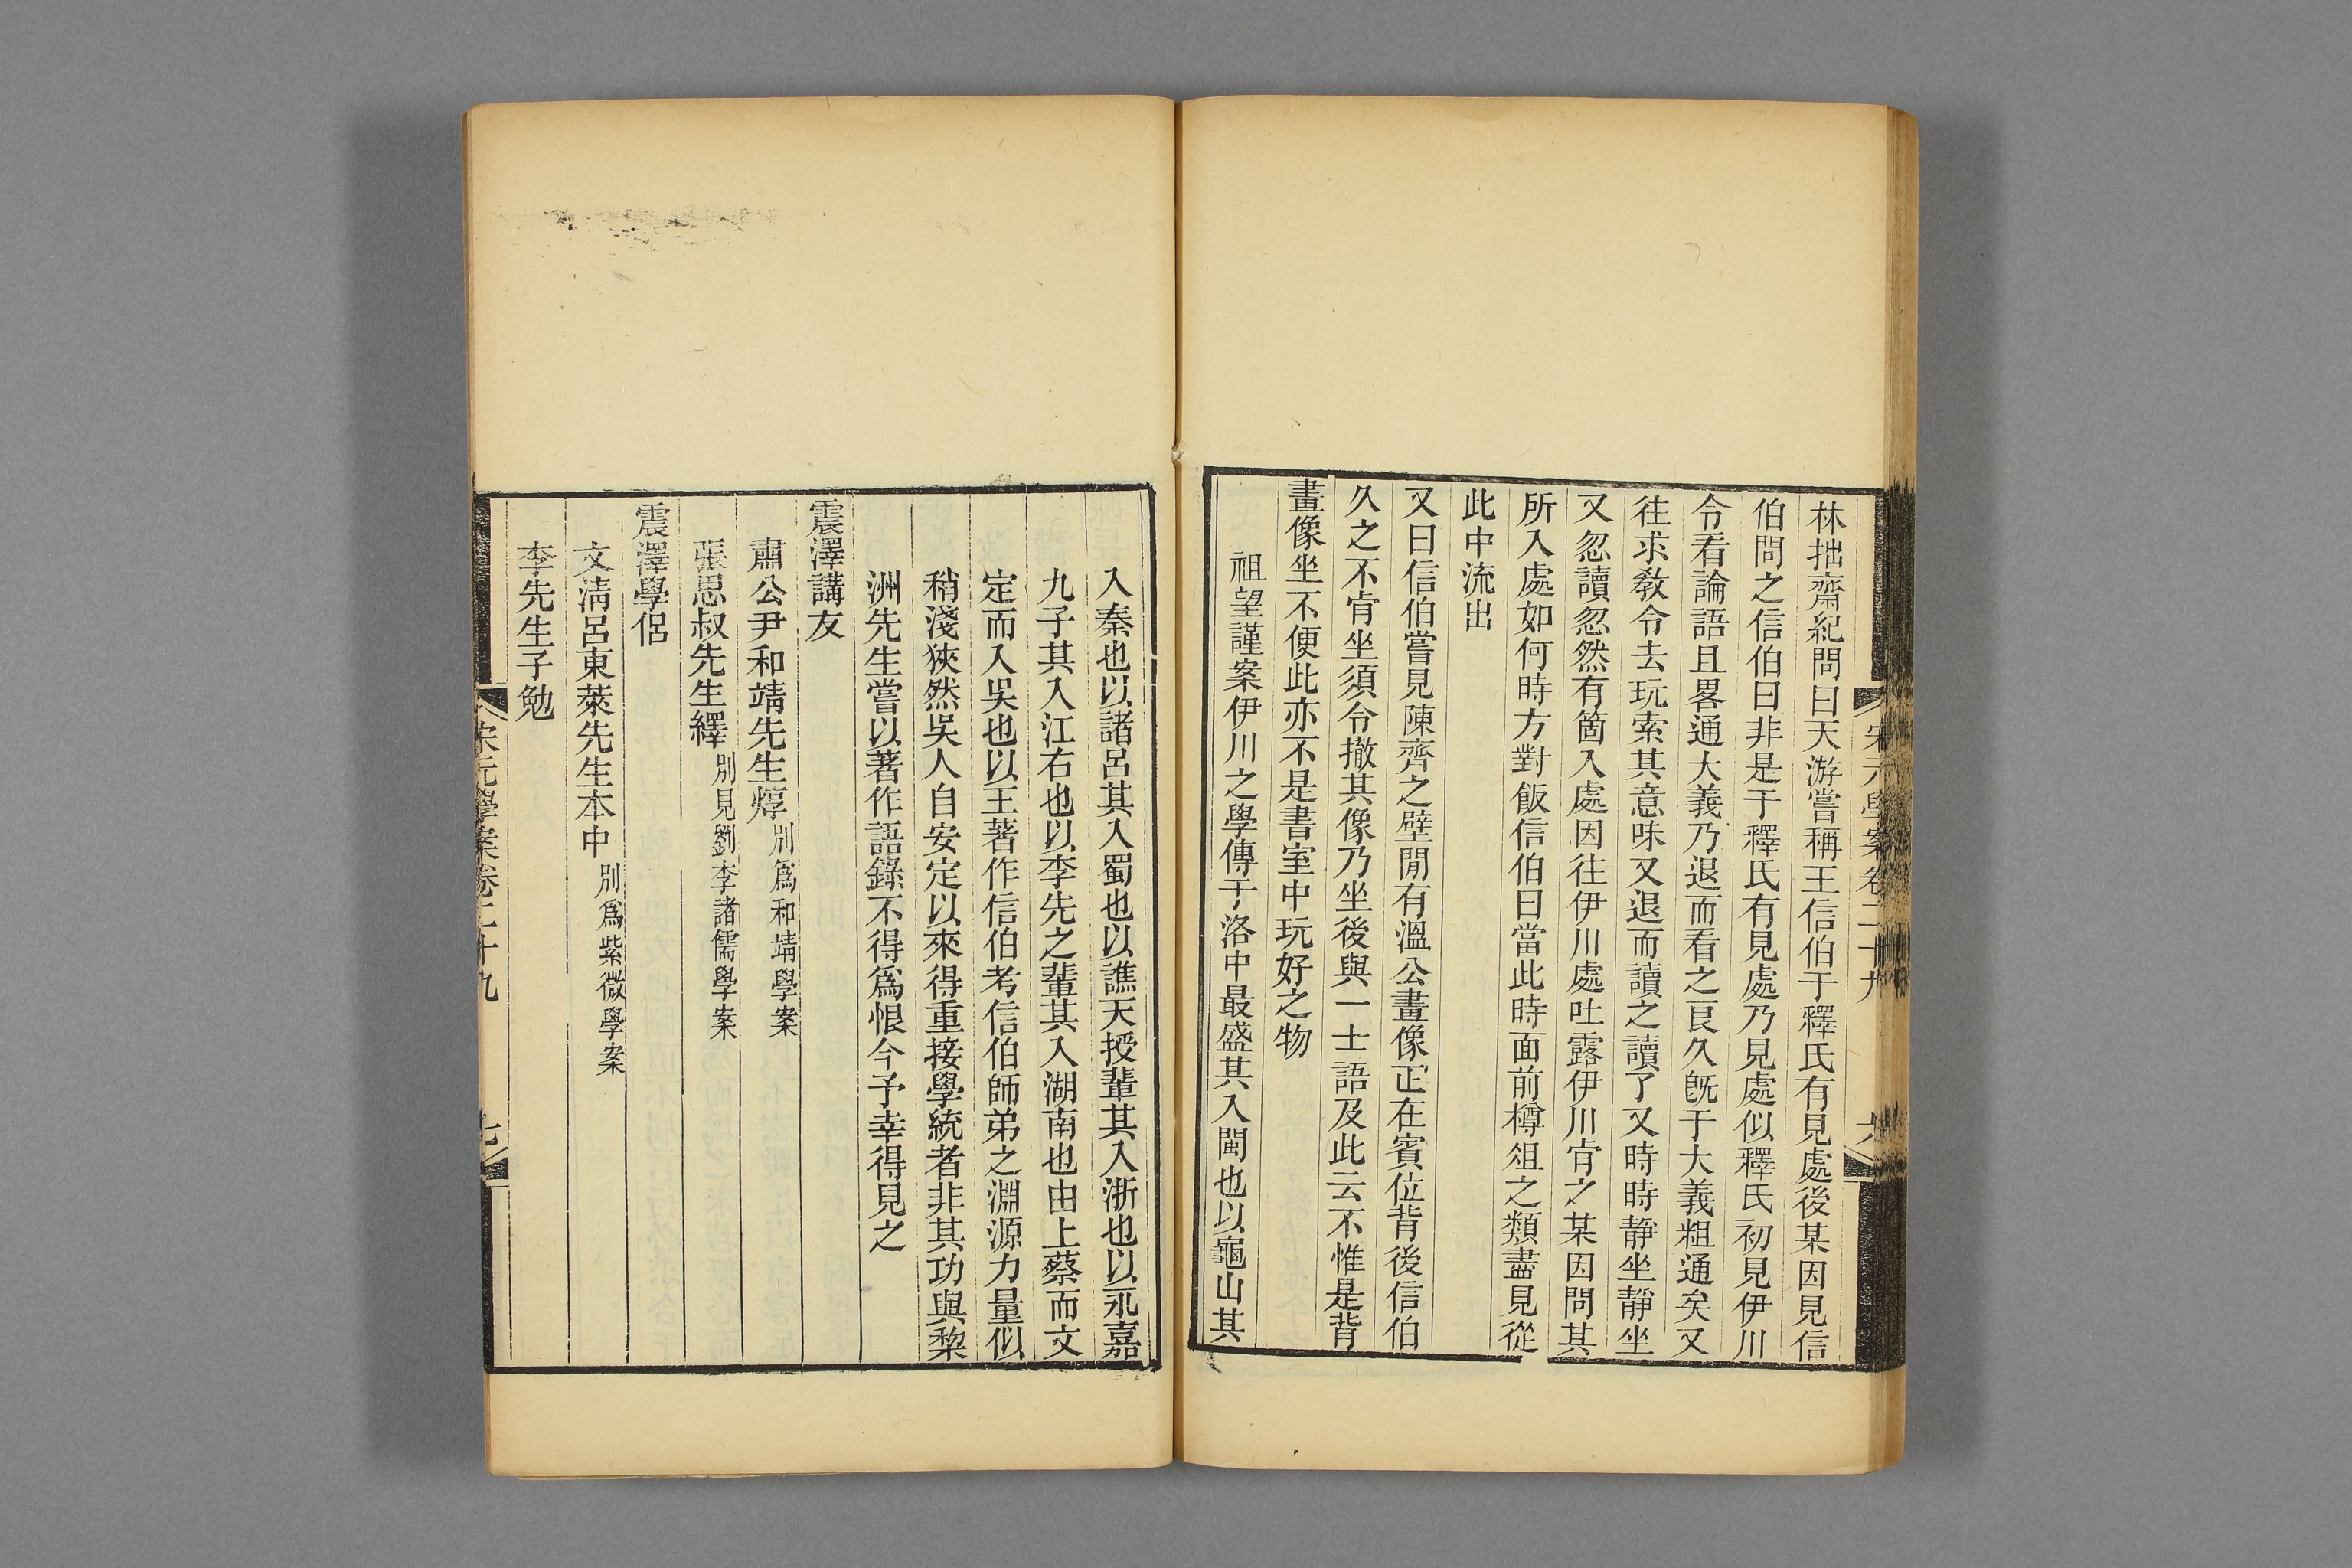 宋元學案卷二十九
六
林拙齋紀問曰天游嘗稱王信伯于釋氏有見處後某因見信
伯問之信伯曰非是于釋氏有見處乃見處似釋氏初見伊川
令看論語且畧通大義乃退而看之良久旣于大義粗通矣又
往求敎令去玩索其意味又退而讀之讀了又時時靜坐靜坐
又忽讀忽然有箇入處因往伊川處吐露伊川肯之某因問其
所入處如何時方對飯信伯曰當此時面前樽俎之類盡見從
此中流出
又曰信伯嘗見陳齊之壁閒有溫公畫像正在賓位背後信伯
久之不肯坐須令撤其像乃坐後與一士語及此云不惟是背
畫像坐不便此亦不是書室中玩好之物
祖望謹案伊川之學傳于洛中最盛其入閩也以龜山其
入秦也以諸呂其入蜀也以譙天授輩其入浙也以永嘉
九子其入江右也以李先之輩其入湖南也由上蔡而文
定而入吳也以王著作信伯考信伯師弟之淵源力量似
稍淺狹然吳人自安定以來得重接學統者非其功與黎
洲先生嘗以著作語錄不得爲恨今予幸得見之
震澤講友
肅公尹和靖先生焞別爲和靖學案
張思叔先生繹別見劉李諸儒學案
震澤學侶
文淸呂東萊先生本中別爲紫微學案
李先生子勉
宋元學案卷二十九
七